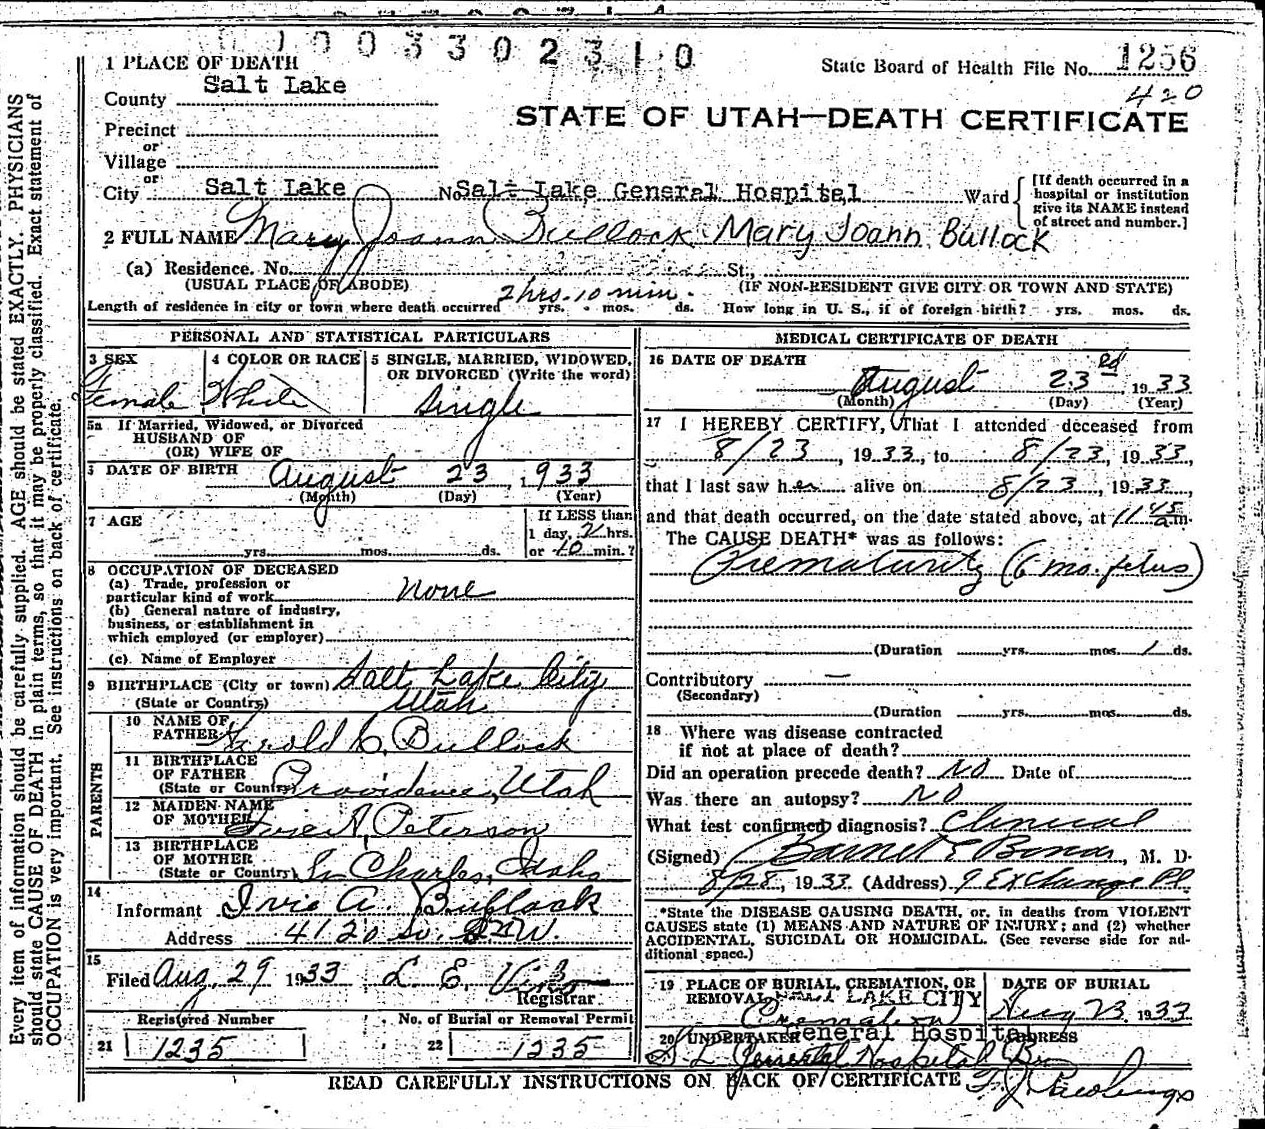 1003302310
1 PLACE OF DEATH
State Board of Health File No. 1256
County Salt Lake
420
STATE OF UTAH—DEATH CERTIFICATE
Precinct
or
Village
or
City Salt Lake No. Salt Lake General Hospital Ward
[If death occurred in a
hospital or institution
give its NAME instead
of street and number.]
2 FULL NAME Mary Joann Bullock Mary Joann Bullock
(a) Residence. No. St.,
(USUAL PLACE OF ABODE) (IF NON-RESIDENT GIVE CITY OR TOWN AND STATE)
Length of residence in city or town where death occurred 2 hrs. 10 min. yrs. mos. ds. How long in U. S., if of foreign birth? yrs. mos. ds.
PERSONAL AND STATISTICAL PARTICULARS
3 SEX
Female
4 COLOR OR RACE
White
5 SINGLE, MARRIED, WIDOWED,
OR DIVORCED (Write the word)
Single
5a If Married, Widowed, or Divorced
HUSBAND OF
(OR) WIFE OF
DATE OF BIRTH August 23, 1933
(Month) (Day) (Year)
7 AGE
yrs. mos. ds.
If LESS than
1 day, 2 hrs.
or 10 min.?
8 OCCUPATION OF DECEASED
(a) Trade, profession or
particular kind of work none
(b) General nature of industry,
business, or establishment in
which employed (or employer)
(c) Name of Employer
9 BIRTHPLACE (City or town) Salt Lake City
(State or Country) Utah
PARENTS
10 NAME OF
FATHER Harold C. Bullock
11 BIRTHPLACE
OF FATHER
(State or Country) Providence, Utah
12 MAIDEN NAME
OF MOTHER A. Peterson
13 BIRTHPLACE
OF MOTHER
(State or Country) St. Charles, Idaho
14
Informant A. Bullock
Address 4120 So.
15
Filed Aug. 29 1933 L. E.
Registrar
Registered Number
21 1235
No. of Burial or Removal Permit
22 1235
MEDICAL CERTIFICATE OF DEATH
16 DATE OF DEATH
August 23rd 1933
(Month) (Day) (Year)
17 I HEREBY CERTIFY, That I attended deceased from
8/23, 1933, to 8/23, 1933,
that I last saw her alive on 8/23, 1933,
and that death occurred, on the date stated above, at 11 45 a.m.
The CAUSE DEATH* was as follows:
Prematurity (6 mo. fetus)
(Duration yrs. mos. 1 ds.
Contributory —
(Secondary)
(Duration yrs. mos. ds.
18 Where was disease contracted
if not at place of death?
Did an operation precede death? No Date of
Was there an autopsy? No
What test confirmed diagnosis? Clinical
(Signed) Barnet E Bonar, M. D.
8/28, 1933 (Address) 9 Exchange Pl.
*State the DISEASE CAUSING DEATH, or, in deaths from VIOLENT
CAUSES state (1) MEANS AND NATURE OF INJURY; and (2) whether
ACCIDENTAL, SUICIDAL OR HOMICIDAL. (See reverse side for ad-
ditional space.)
19 PLACE OF BURIAL, CREMATION, OR
REMOVAL SALT LAKE CITY
Cremation
DATE OF BURIAL
Aug 23, 1933
20 UNDERTAKER General Hospital ADDRESS
S L General Hospital
READ CAREFULLY INSTRUCTIONS ON BACK OF CERTIFICATE
Every item of information should be carefully supplied. AGE should be stated EXACTLY. PHYSICIANS
should state CAUSE OF DEATH in plain terms, so that it may be properly classified. Exact statement of
OCCUPATION is very important. See instructions on back of certificate.